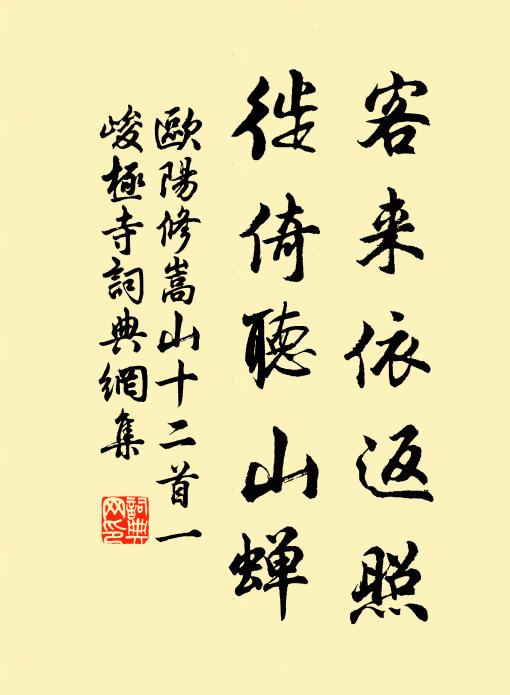 客来依返照
徙倚聽山蟬
歐陽修嵩山十二首一
峻極寺詞典網集
詞典網印